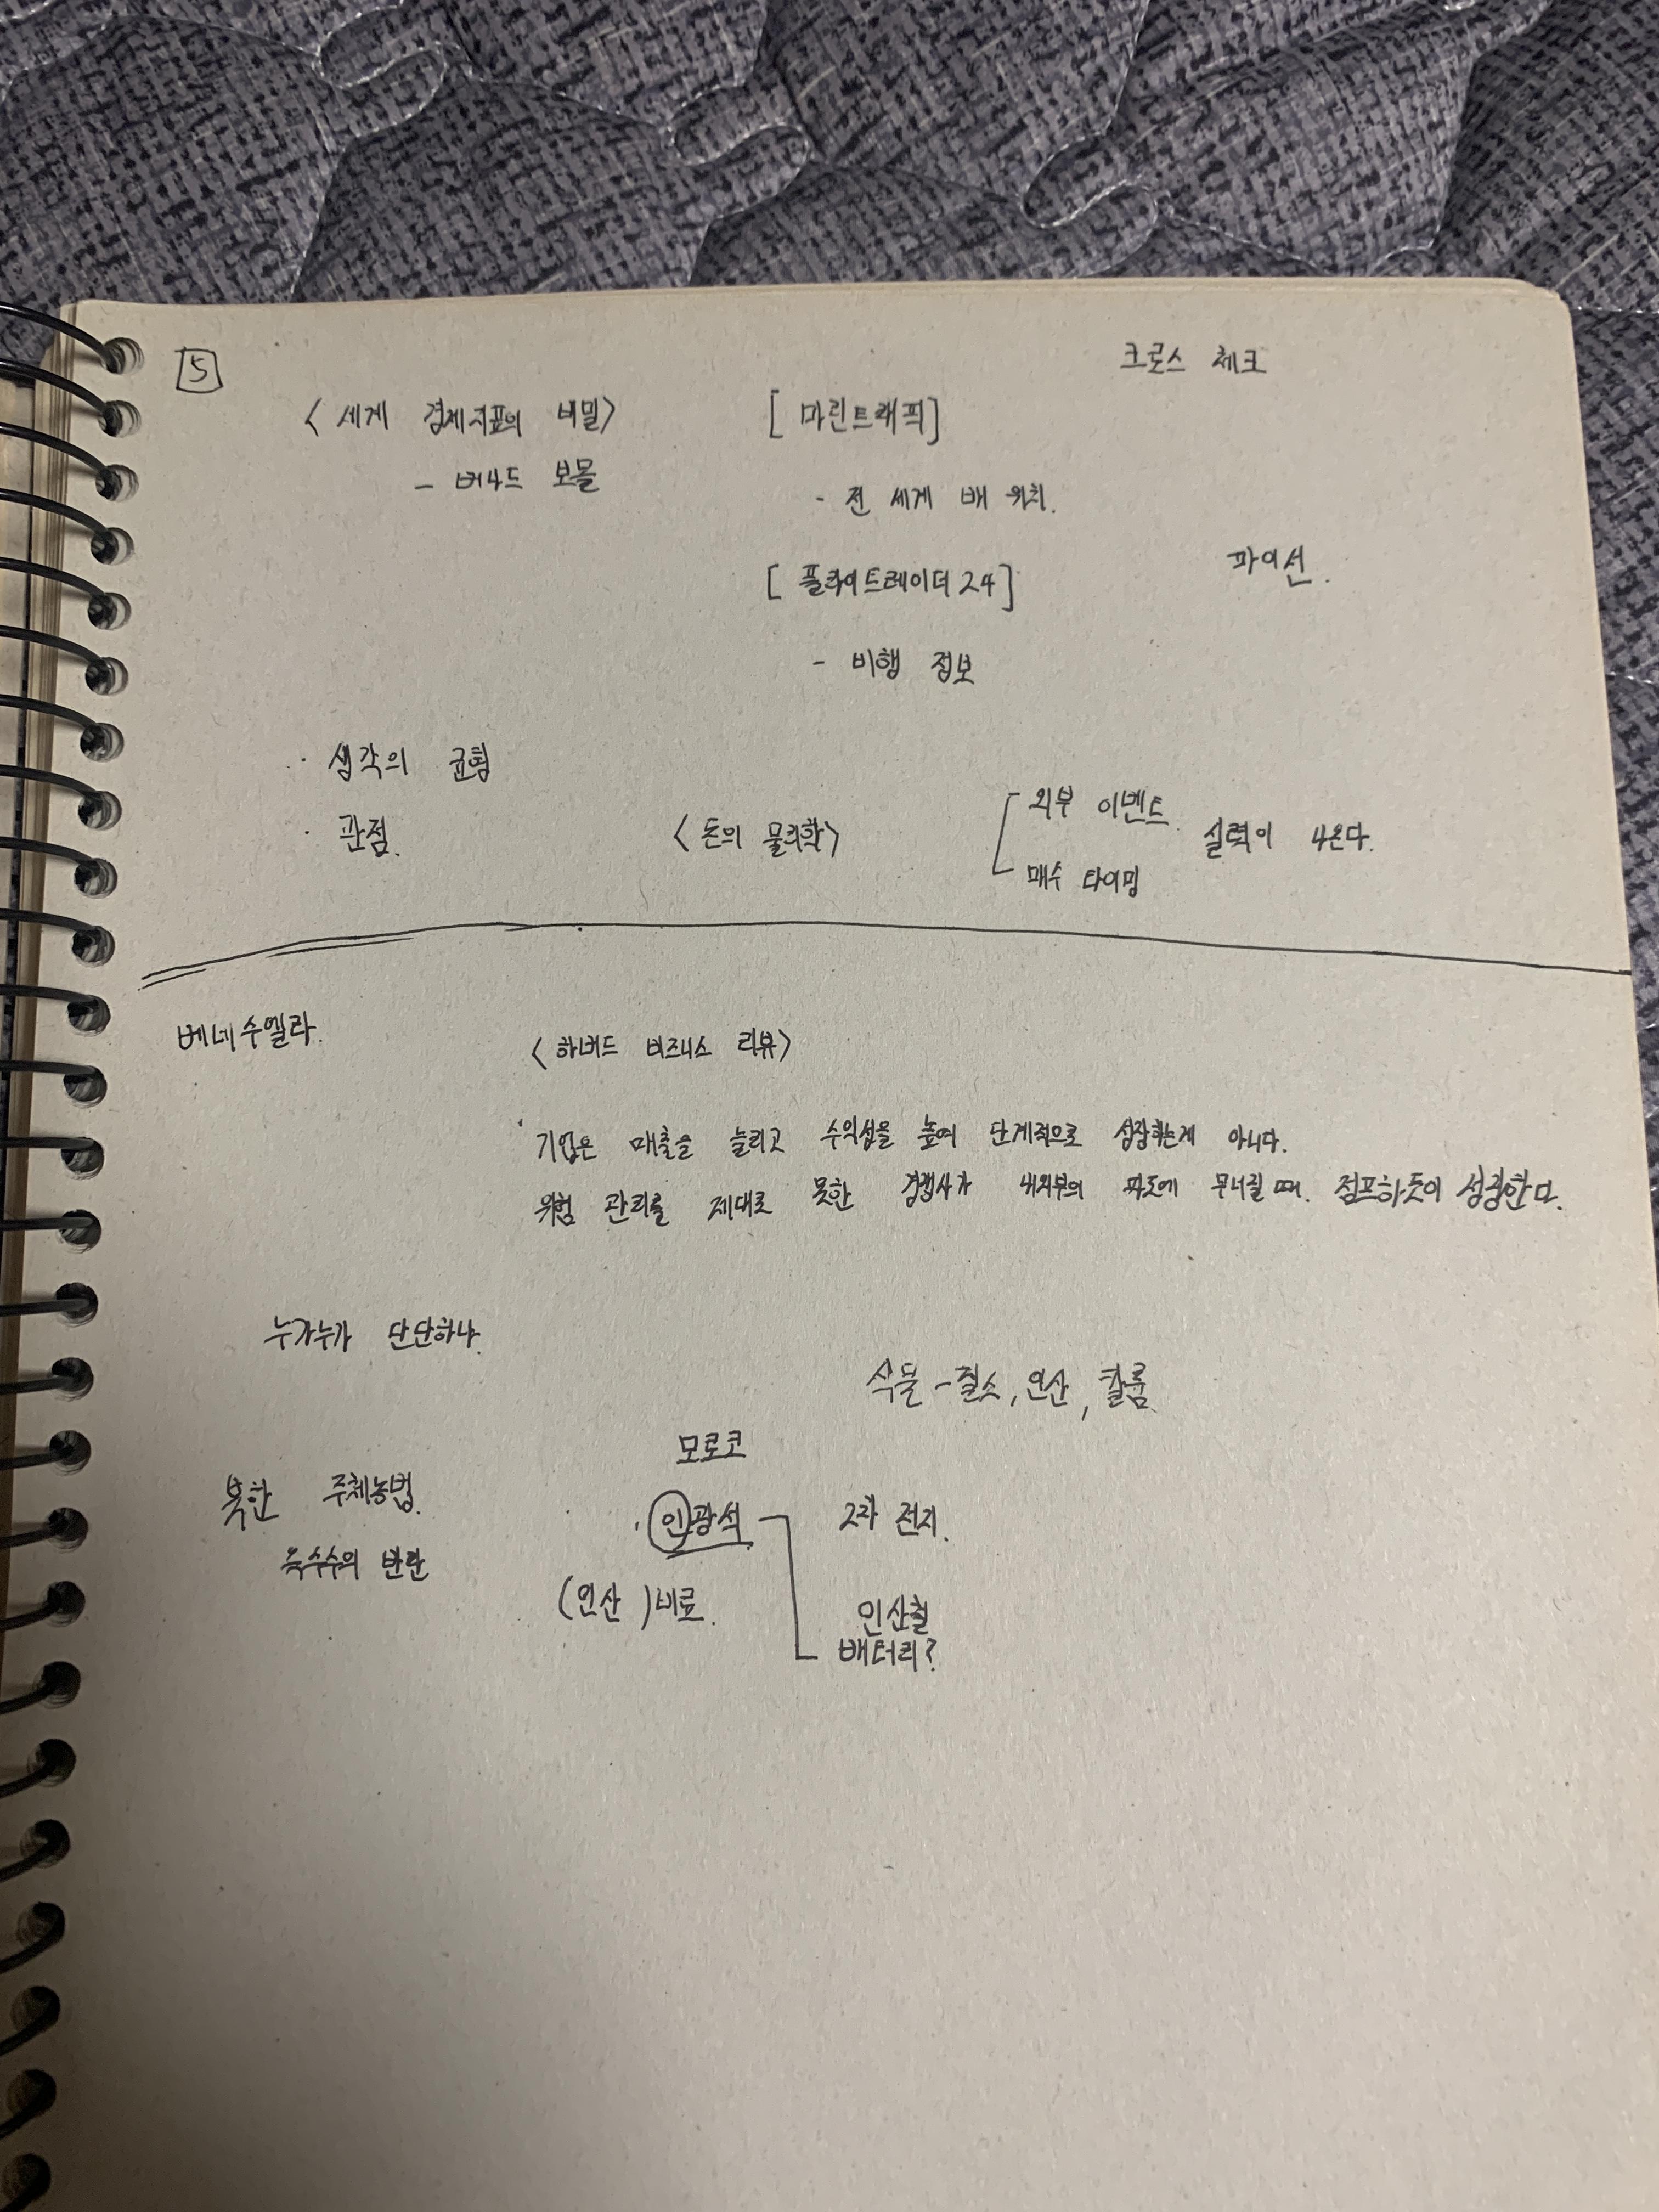 5
크로스 체크
<세계 경제지표의 비밀>
- 버나드 보몰
[마린트래픽]
- 전 세계 배 위치.
[플라이트레이더 24]
- 비행 정보
파이선.
· 생각의 균형
· 관점.
<돈의 물리학>
외부 이벤트
매수 타이밍
실력이 나온다.
베네수엘라.
<하버드 비즈니스 리뷰>
기업은 매출을 늘리고 수익성을 높여 단계적으로 성장하는게 아니다.
위험 관리를 제대로 못한 경쟁사가 내외부의 파도에 무너질 때. 점프하듯이 성장한다.
누가누가 단단하나.
식물 - 질소, 인산, 칼륨.
북한 주체농법.
옥수수의 반란
모로코
· 인광석
(인산)비료.
2차 전지.
인산철
배터리?